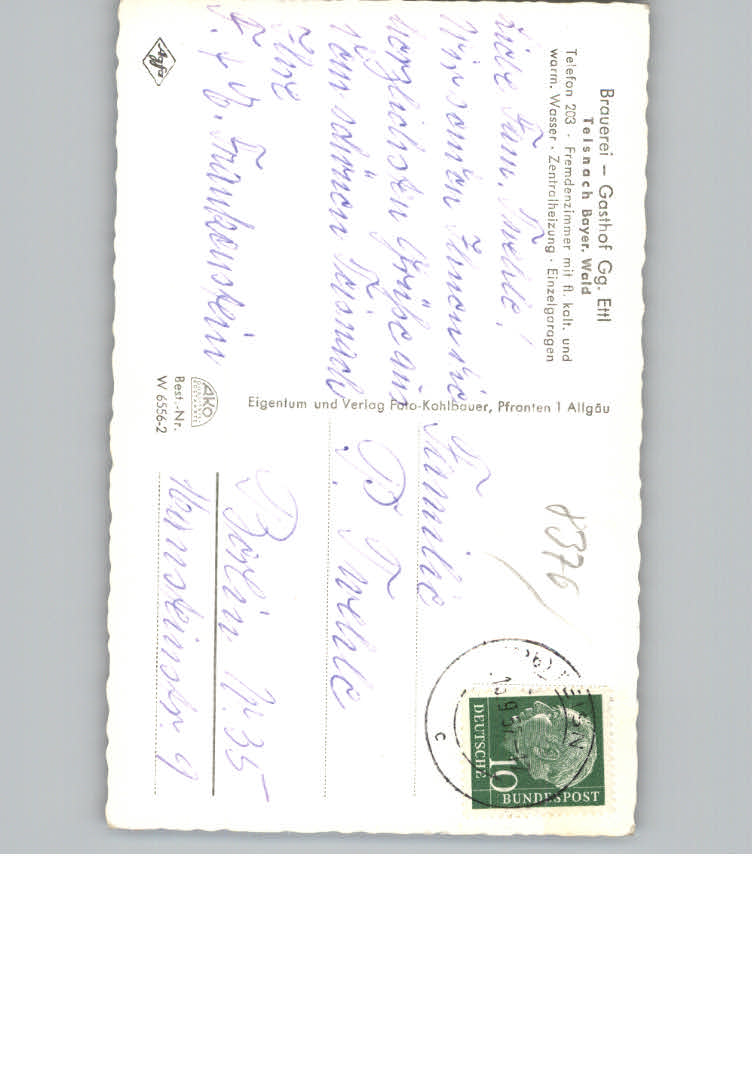 Brauerei – Gasthof Gg. Ettl
Teisnach Bayer. Wald
Telefon 203 · Fremdenzimmer mit fl. kalt. und
warm. Wasser · Zentralheizung · Einzelgaragen
Liebe Fam. Twelle!
Wir senden Ihnen die
herzlichsten Grüße aus
dem schönen Teisnach
Ihre
F. + E. Frankenstein
Agfa
Eigentum und Verlag Foto-Kohlbauer, Pfronten 1 Allgäu
AKO
Best.-Nr.
W 6556-2
8376
Familie
P. Twelle
Berlin N. 35
9
DEUTSCHE
BUNDESPOST
10
c